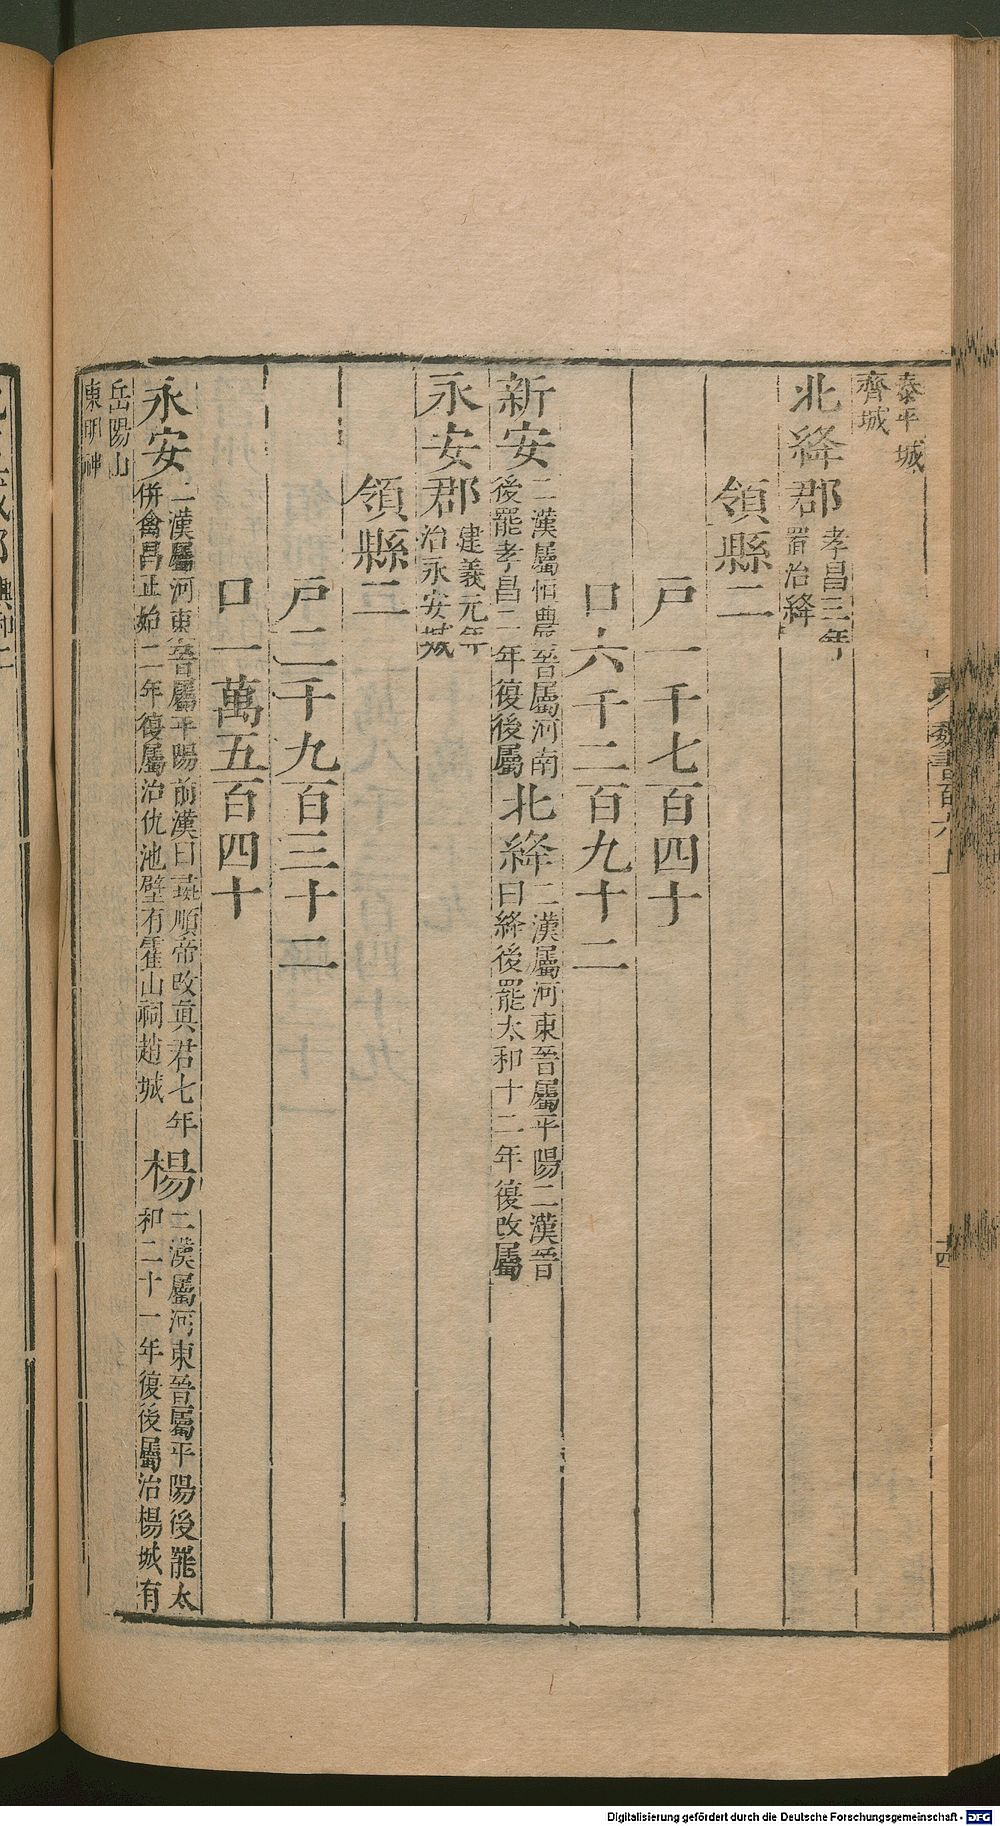 泰平城
齊城
北絳郡孝昌三年
置治絳
領縣二
戸一千七百四十
口六千二百九十二
新安二漢屬恒農晉屬河南
後罷孝昌二年復後屬
北絳二漢屬河東晉屬平陽二漢晉
曰絳後罷太和十二年復改屬
永安郡建義元年
治永安城
領縣二
戸二千九百三十二
口一萬五百四十
永安二漢屬河東晉屬平陽前漢曰彘順帝改眞君七年
併禽昌正始二年復屬治仇池壁有霍山祠趙城
楊二漢屬河東晉屬平陽後罷太
和二十一年復後屬治楊城有
岳陽山
東明神
魏書百六上
十四
Digitalisierung gefördert durch die Deutsche Forschungsgemeinschaft - DFG